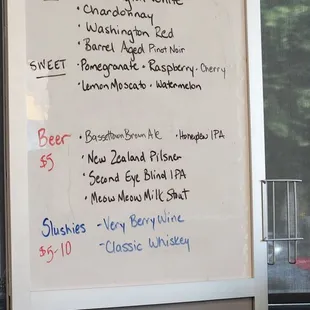 White
• Chardonnay
• Washington Red
• Barrel Aged Pinot Noir
SWEET • Pomegranate • Raspberry • Cherry
• Lemon Moscato • Watermelon
Beer • Bassettown Brown Ale • Honeydew IPA
$5 • New Zealand Pilsner
• Second Eye Blind IPA
• Meow Meow Milk Stout
Slushies - Very Berry Wine
$5-10 - Classic Whiskey